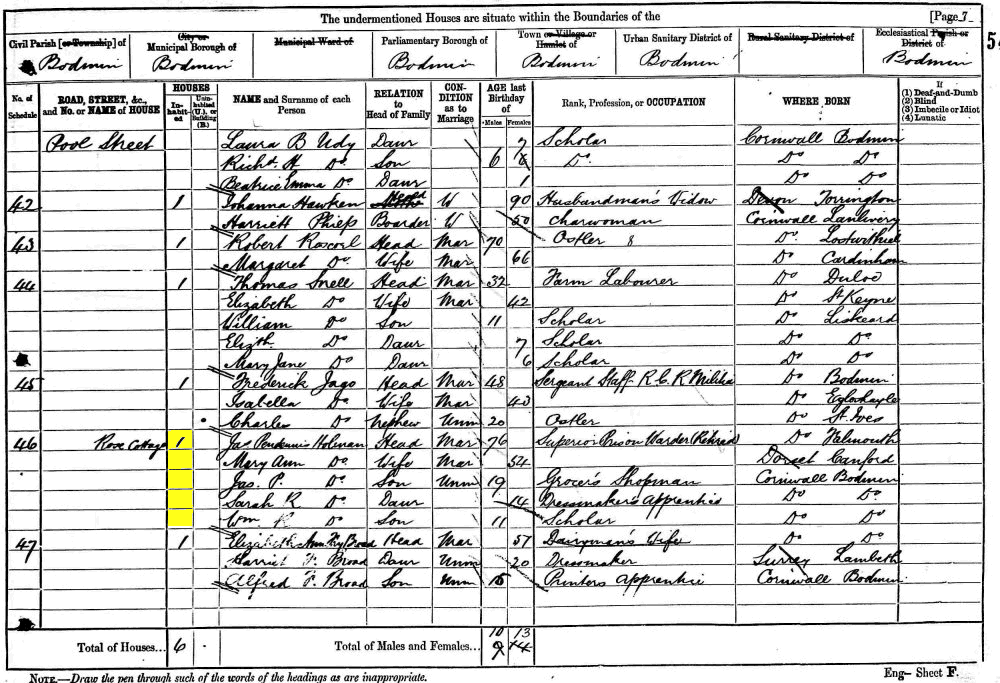 The undermentioned Houses are situate within the Boundaries of the [Page 7
Civil Parish [or Township] of City or Municipal Borough of Municipal Ward of Parliamentary Borough of Town or Village or Hamlet of Urban Sanitary District of Rural Sanitary District of Ecclesiastical Parish or District of
Bodmin Bodmin Bodmin Bodmin Bodmin Bodmin
No. of Schedule ROAD, STREET, &c., and No. or NAME of HOUSE HOUSES In-habit-ed Unin-habited (U.), or Building (B.) NAME and Surname of each Person RELATION to Head of Family CON-DITION as to Marriage AGE last Birthday of Males Females Rank, Profession, or OCCUPATION WHERE BORN If (1) Deaf-and-Dumb (2) Blind (3) Imbecile or Idiot (4) Lunatic
Pool Street Laura B Udy Daur 7 Scholar Cornwall Bodmin
Richd. H Do Son 6 Do. Do Do
Beatrice Emma Do Daur 1 Do Do
42 1 Johanna Hawken Head W 90 Husbandman's Widow Devon Torrington
Harriett Boarder W 50 Charwoman Cornwall Lanlivery
43 1 Robert Head Mar 70 Ostler Do Lostwithiel
Margaret Do Wife Mar 66 Do Cardinham
44 1 Thomas Snell Head Mar 32 Farm Labourer Do Duloe
Elizabeth Do Wife Mar 42 Do St Keyne
William Do Son 11 Scholar Do Liskeard
Elizth Do Daur 7 Scholar Do Do
Mary Jane Do Daur 6 Scholar Do Do
45 1 Frederick Jago Head Mar 48 Sergeant Staff R. C. R Militia Do Bodmin
Isabella Do Wife Mar 40 Do Egloshayle
Charles Do Nephew Unm 20 Ostler Do St. Ives
46 Rose Cottage 1 Jas Pendennis Holman Head Mar 76 Superior Prison Warder (Retired) Do Falmouth
Mary Ann Do Wife Mar 54 Dorset Canford
Jas. P. Do Son Unm 19 Grocer's Shopman Cornwall Bodmin
Sarah R Do Daur 14 Dressmaker's Apprentice Do Do
Wm. R Do Son 11 Scholar Do Do
47 1 Elizabeth Ann Broad Head Mar 57 Dairyman's Wife Do Do
Harriet F. Broad Daur Unm 20 Dressmaker Surrey Lambeth
Alfred F. Broad Son Unm 15 Printers Apprentice Cornwall Bodmin
10 13
Total of Houses... 6 Total of Males and Females... 9 14
NOTE.—Draw the pen through such of the words of the headings as are inappropriate. Eng— Sheet F.